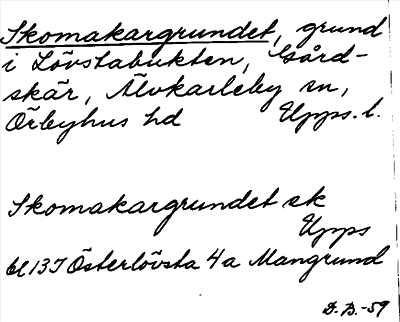 Skomakargrundet, grund
i Lövstabukten, Gård-
skär, Älvkarleby sn,
Örbyhus hd Upps. l.
Skomakargrundet sk
Upps
bl 13I Österlövsta 4a Mangrund
D. B. -59